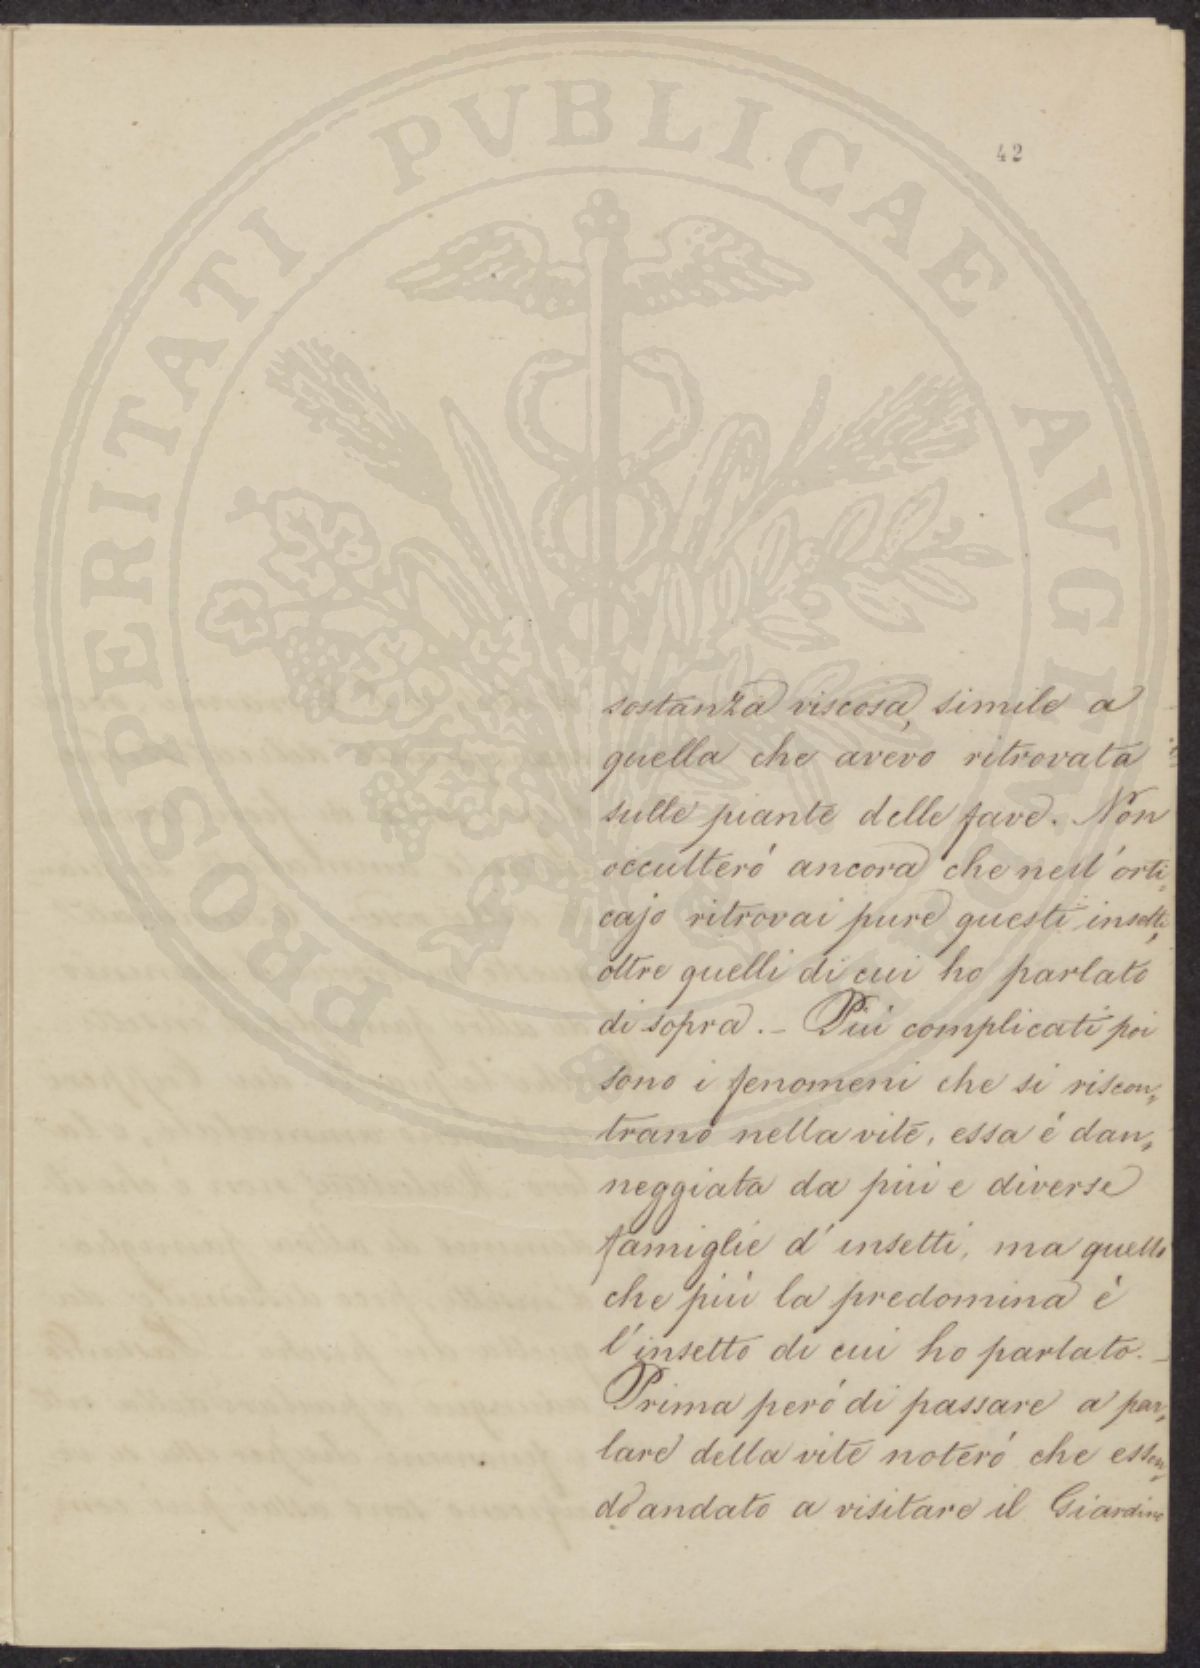 PROSPERITATI PUBLICAE AUGENDAE
42
sostanza viscosa, simile a
quella che avevo ritrovata
sulle piante delle fave. Non
occulteró ancora che nell'orti„
cajo ritrovai pure questi insetti,
oltre quelli di cui ho parlato
di sopra. – Piú complicati poi
sono i fenomeni che si riscon„
trano nella vite, essa é dan„
neggiata da piú e diverse
famiglie d'insetti, ma quello
che piú la predomina é
l'insetto di cui ho parlato. –
Prima peró di passare a par„
lare della vite noteró che essen„
do andato a visitare il Giardino